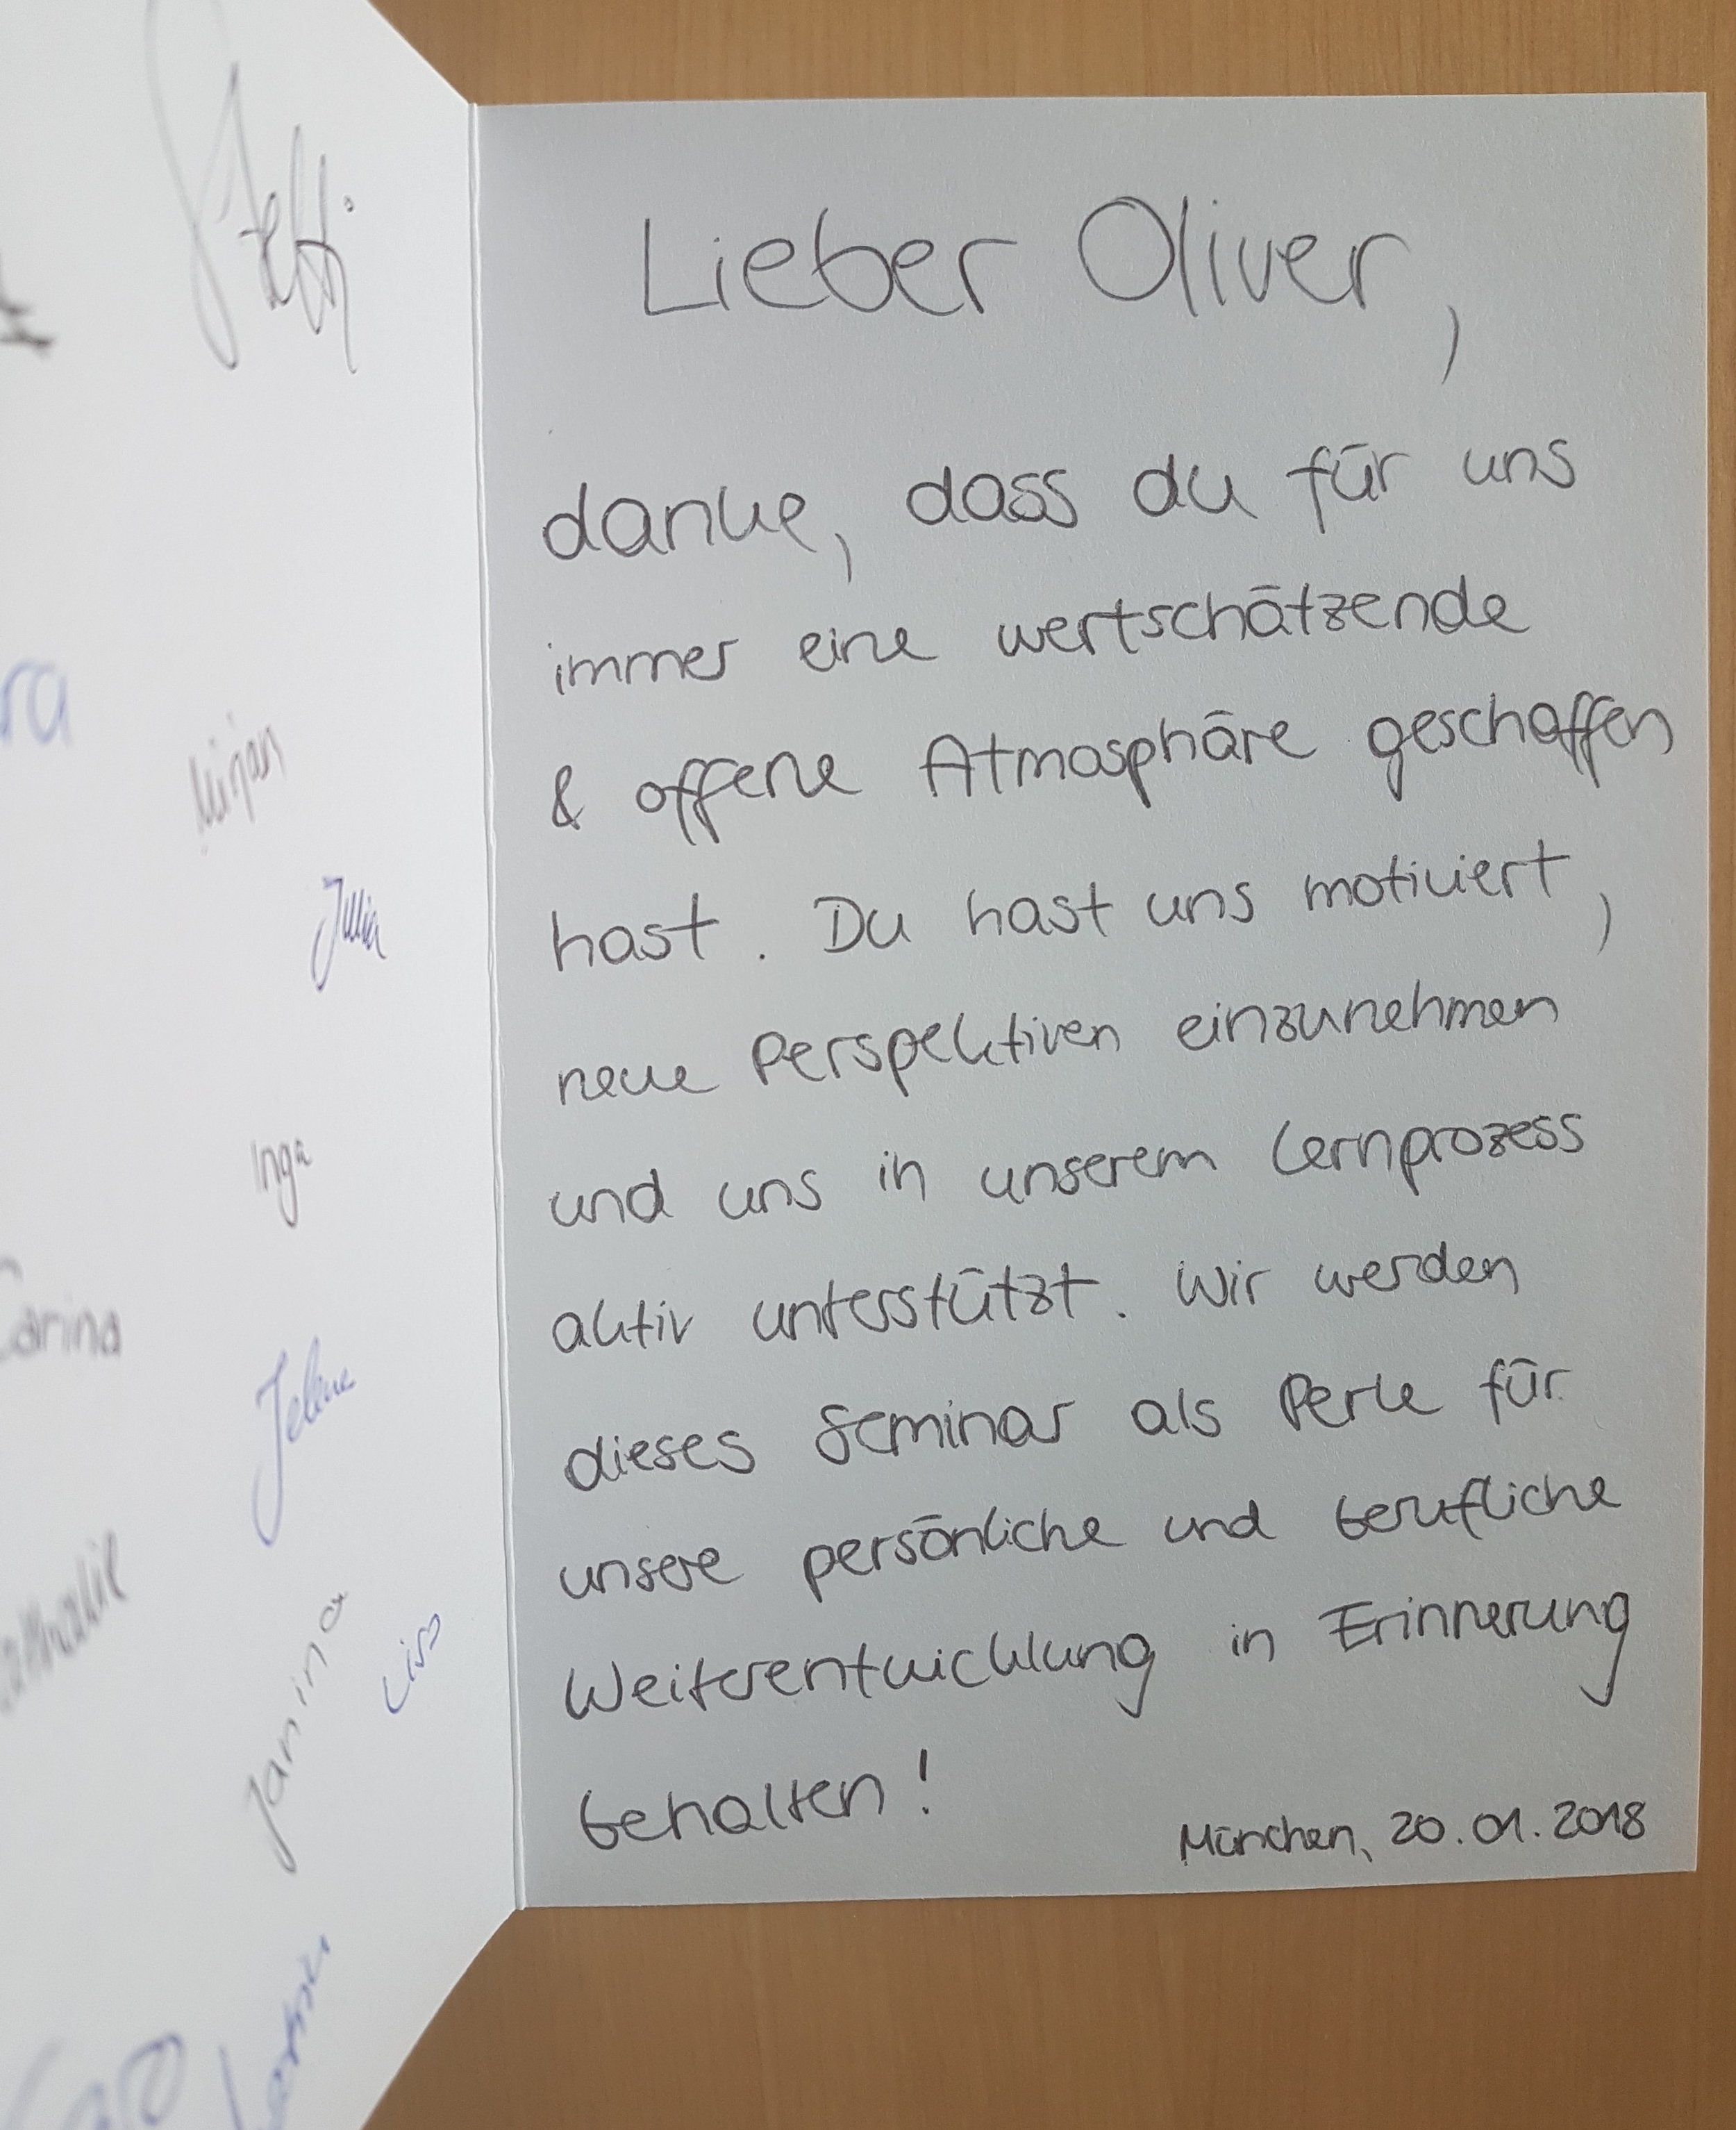 Steffi
Mirjam
Julia
Inga
Carina
Jelena
Janina
Lisa
Lieber Oliver,
danke, dass du für uns
immer eine wertschätzende
& offene Atmosphäre geschaffen
hast. Du hast uns motiviert,
neue Perspektiven einzunehmen
und uns in unserem Lernprozess
aktiv unterstützt. Wir werden
dieses Seminar als Perle für
unsere persönliche und berufliche
Weiterentwicklung in Erinnerung
behalten!
München, 20.01.2018